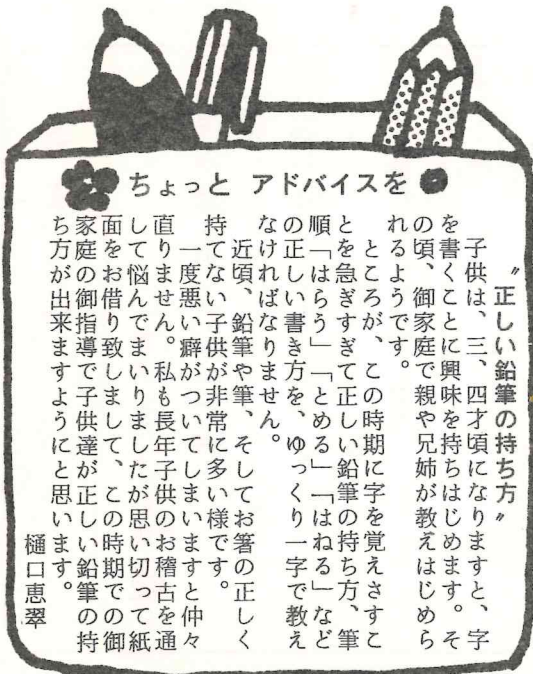 ちょっと アドバイスを
〝正しい鉛筆の持ち方〟
子供は、三、四才頃になりますと、字
を書くことに興味を持ちはじめます。そ
の頃、御家庭で親や兄姉が教えはじめら
れるようです。
ところが、この時期に字を覚えさすこ
とを急ぎすぎて正しい鉛筆の持ち方、筆
順「はらう」「とめる」「はねる」など
の正しい書き方を、ゆっくり一字で教え
なければなりません。
近頃、鉛筆や筆、そしてお箸の正しく
持てない子供が非常に多い様です。
一度悪い癖がついてしまいますと仲々
直りません。私も長年子供のお稽古を通
して悩んでまいりましたが思い切って紙
面をお借り致しまして、この時期での御
家庭の御指導で子供達が正しい鉛筆の持
ち方が出来ますようにと思います。
樋口恵翠